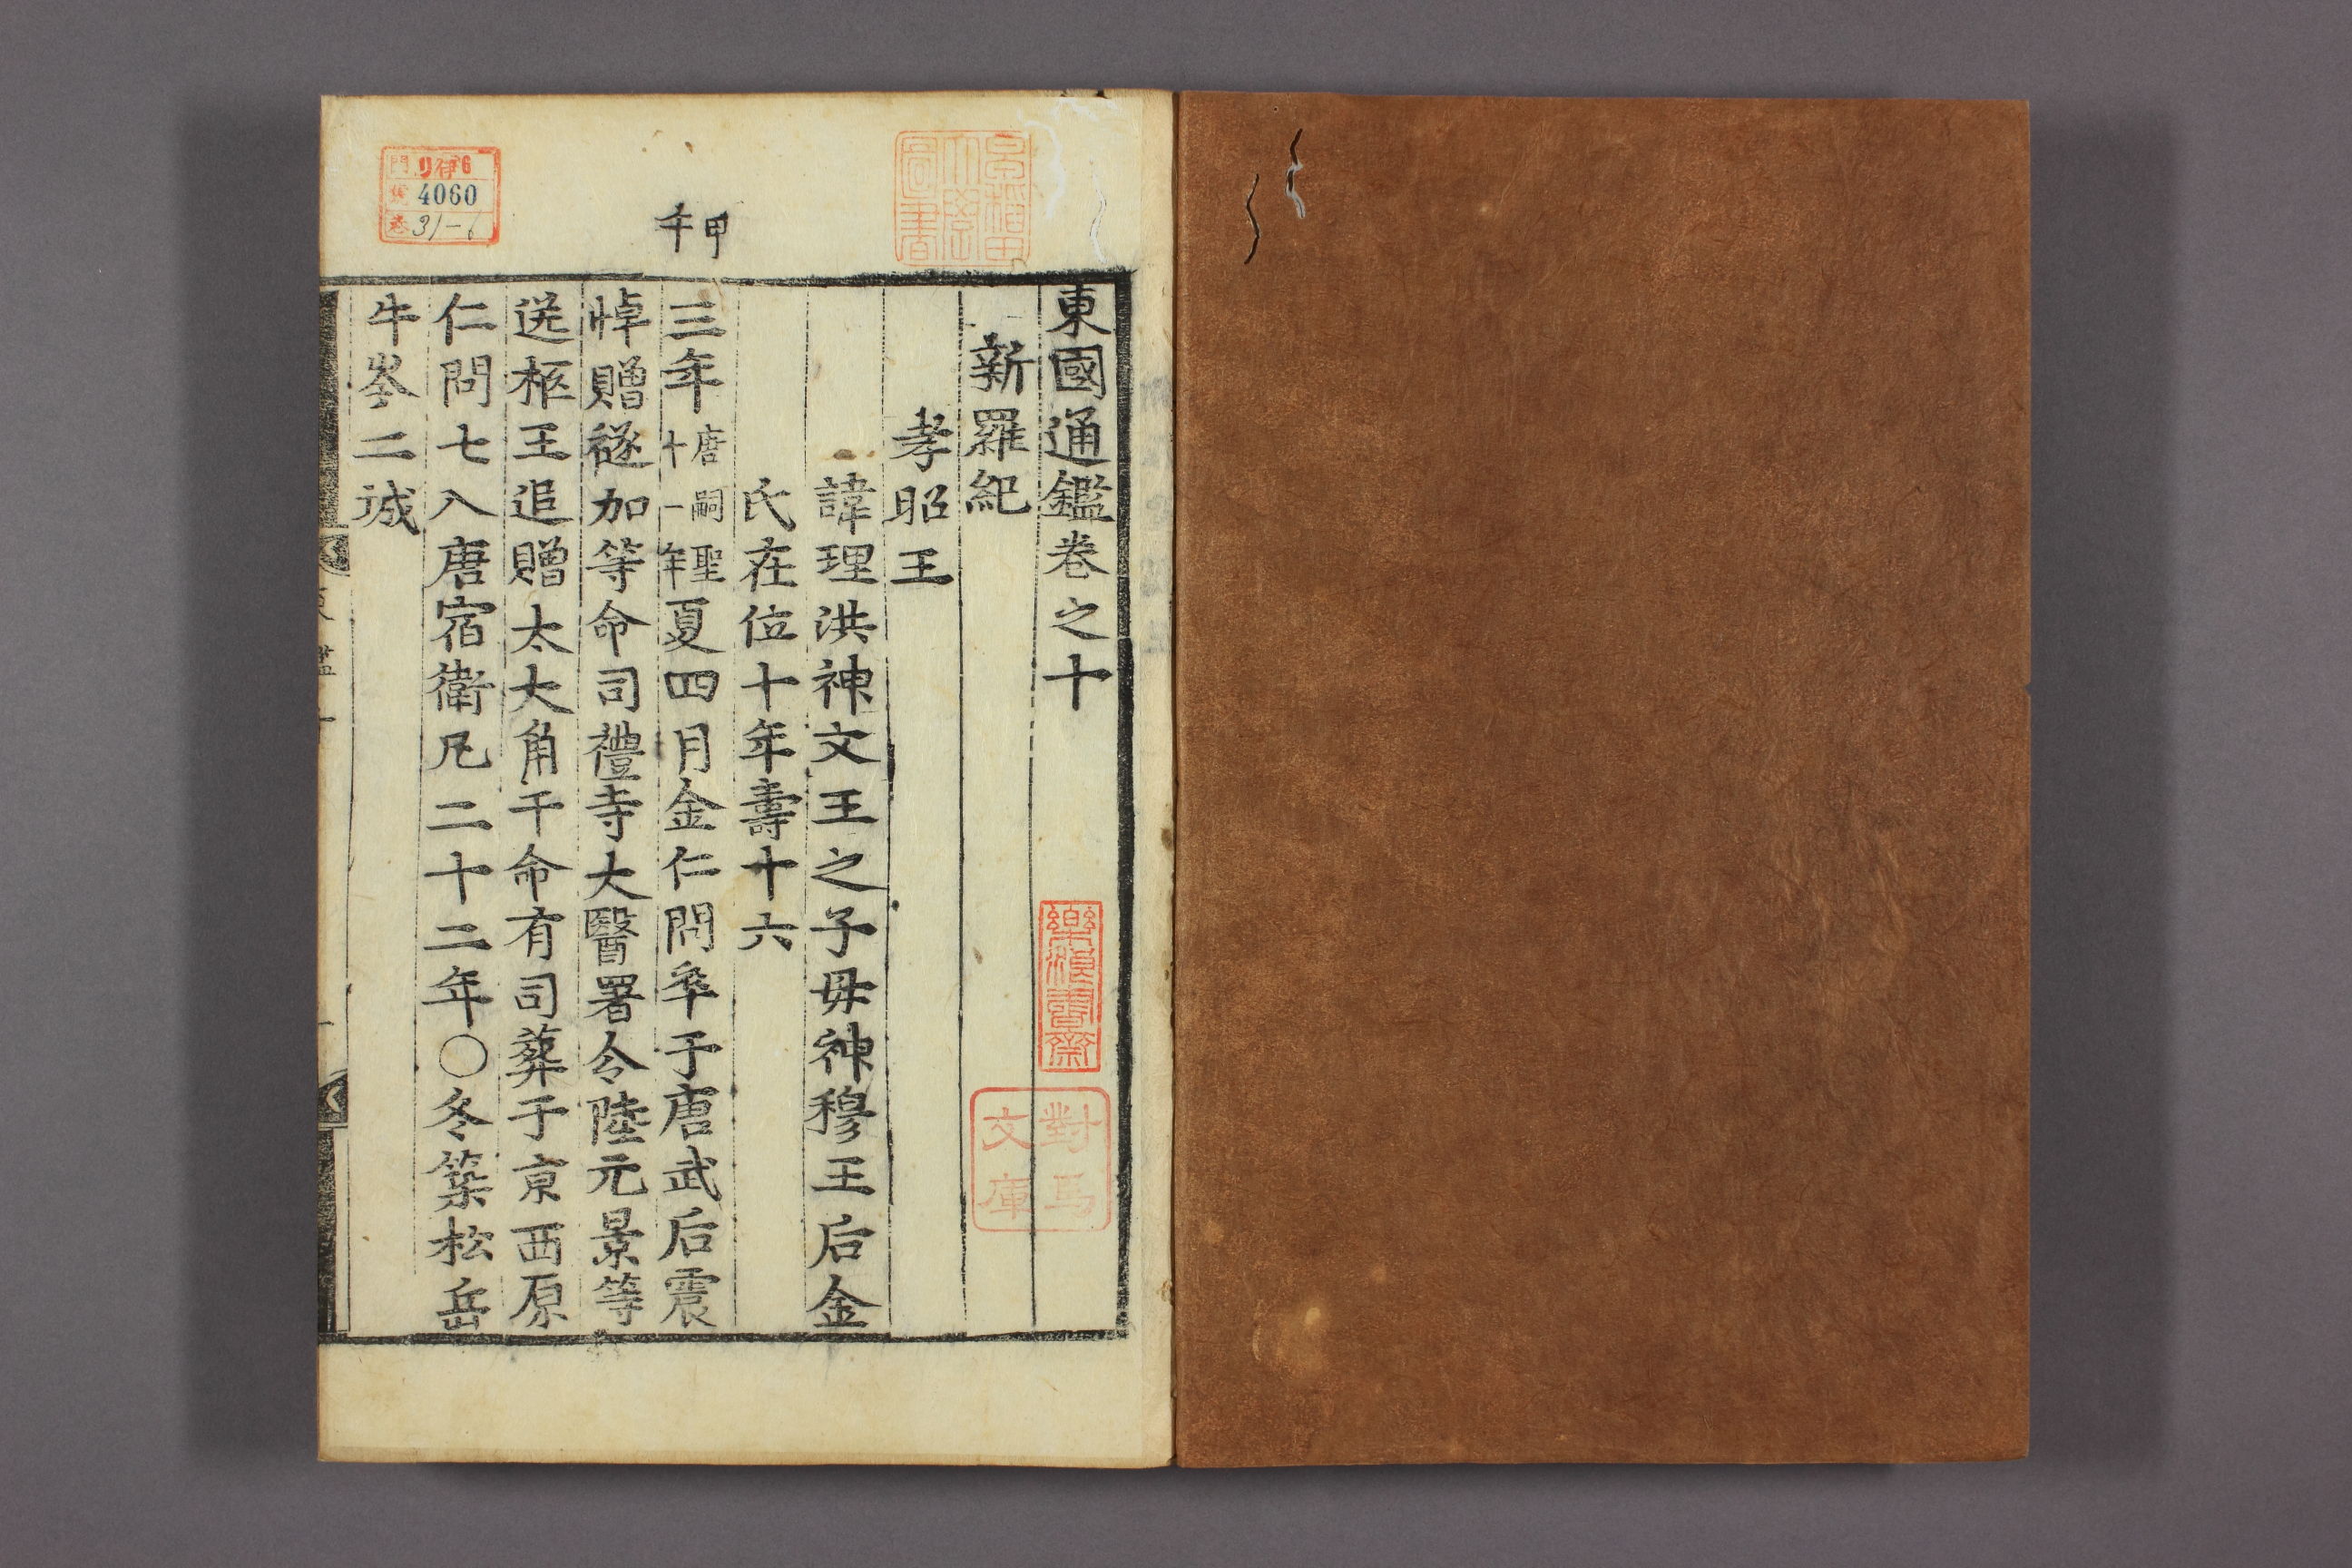 東國通鑑卷之十
新羅紀
孝昭王
諱理洪神文王之子毋神穆王后金
氏在位十年壽十六
甲午
三年唐嗣聖十一年夏四月金仁問卒于唐武后震
悼贈襚加等命司禮寺大醫署令陸元景等
送柩王追贈太大角干命有司葬于京西原
仁問七入唐宿衛凡二十二年○冬築松岳
牛岑二城
樂浪書齋
對馬文庫
早稲田大學圖書
門 リ伊6
號 4060
卷 31-6